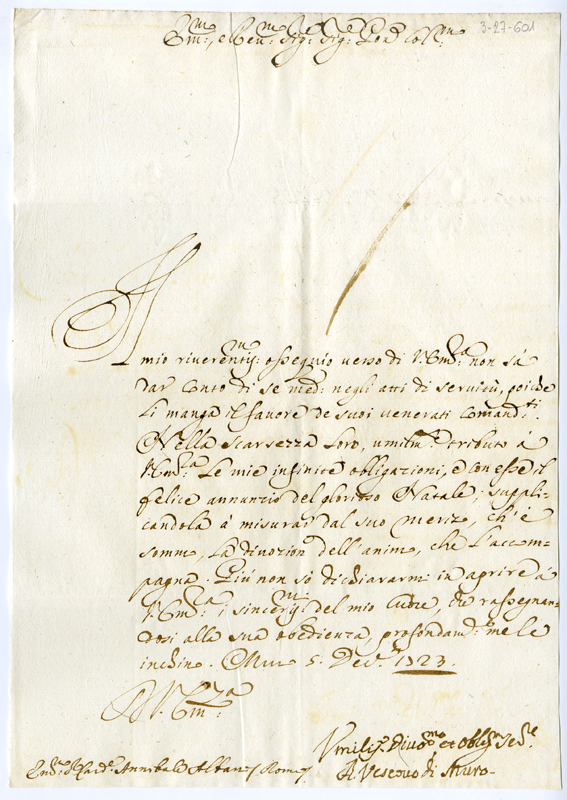 3-27-601
Em:mo, e Rev:mo Sig:re Sig:re Pad: Col:mo
Il
mio riverentis:mo ossequio verso di V. Em:za non sà
dar conto di se med:o negli atti di servitù, poiche
li manca il favore de suoi venerati comand:ti.
Nella scarsezza loro, umilm:te tributo à
V. Em:za le mie infinite obligazioni, e con esse il
felice annunzio del glorioso Natale; suppli-
candola à misurar dal suo merito, ch'è
sommo, la divozion dell'animo, che l'accom-
pagna. Più non sò dichiararmi in aprire à
V. Em:za i sinceris:mi del mio cuore, che rassegnan-
dosi alla sua obedienza, profondam:te me le
inchino. Muro 5. Dec:re 1723.
Di V. Em:za
Umilis:o Divot:mo et Oblig:mo Ser:re
Il Vescovo di Muro
Em:o S:r Card:e Annibale Albani Roma